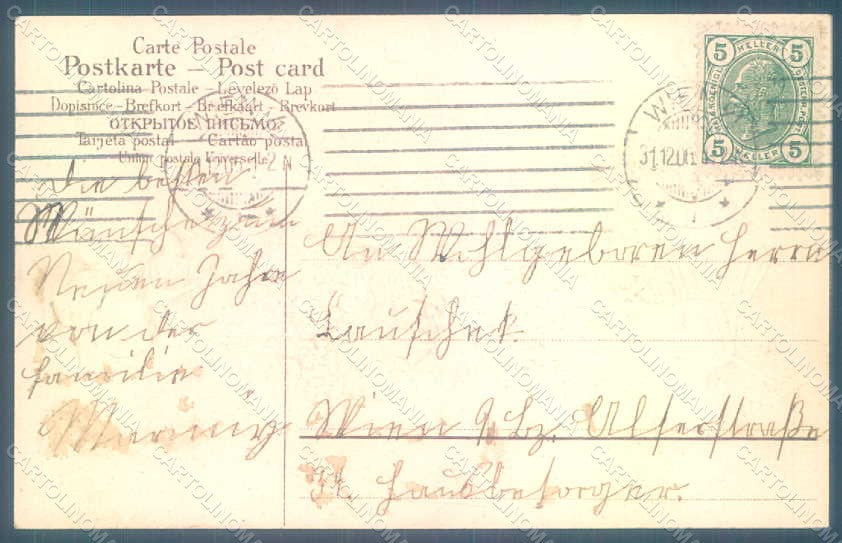 Carte Postale
Postkarte – Post card
Cartolina Postale – Levelező Lap
Dopisnice – Brefkort – Briefkaart – Brevkort
ОТКРЫТОЕ ПИСЬМО
Tarjeta postal – Cartão postal
Union postale Universelle
5 HELLER 5
5 HELLER 5
WIEN
31.12.06
Die besten
Wünsche zum
Neuen Jahre
von der
Familie
An Wohlgeboren Herrn
Wien 9. Bz. Alserstraße
Hausbesorger.
CARTOLINOMANIA